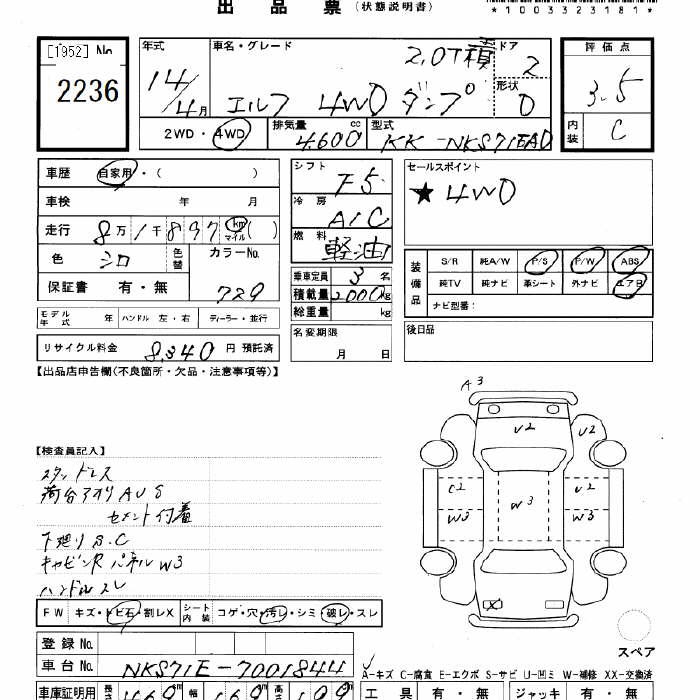 出品票(状態説明書)
*1003323181*
[1952] No 2236
年式 14/4月
車名・グレード エルフ 4WD ダンプ 2.0T積
ドア 2
形状 D
評価点 3.5
内装 C
2WD・4WD
排気量 4,600 cc
型式 KK-NKS71EAD
車歴 自家用・( )
車検 年 月
走行 8万1千897 km マイル ( )
色 シロ 色替 カラーNo. 729
保証書 有・無
モデル年式 年 ハンドル 左・右 ディーラー・並行
リサイクル料金 8,340 円 預託済
シフト F5
冷房 A/C
燃料 軽油
乗車定員 3 名
積載量 2000 kg
総重量 kg
名変期限 月 日
セールスポイント
★4WD
装備品 S/R 純A/W P/S P/W ABS
純TV 純ナビ 革シート 外ナビ エアB
ナビ型番:
後日品
【出品店申告欄(不良箇所・欠品・注意事項等)】
A3
U2 U2
C2 U2
W3 W3 W3
X
【検査員記入】
スタッドレス
荷台アオリ AUS
セメント付着
下廻り S.C
キャビンR パネル W3
ハンドル スレ
FW キズ・トビ石・割レX シート内装 コゲ・穴・汚レ・シミ・破レ・スレ
スペア
登録No.
車台No. NKS71E-7001844
A-キズ C-腐食 E-エクボ S-サビ U-凹ミ W-補修 XX-交換済
車庫証明用 長さ 469 幅 169 高さ 199
工具 有・無 ジャッキ 有・無